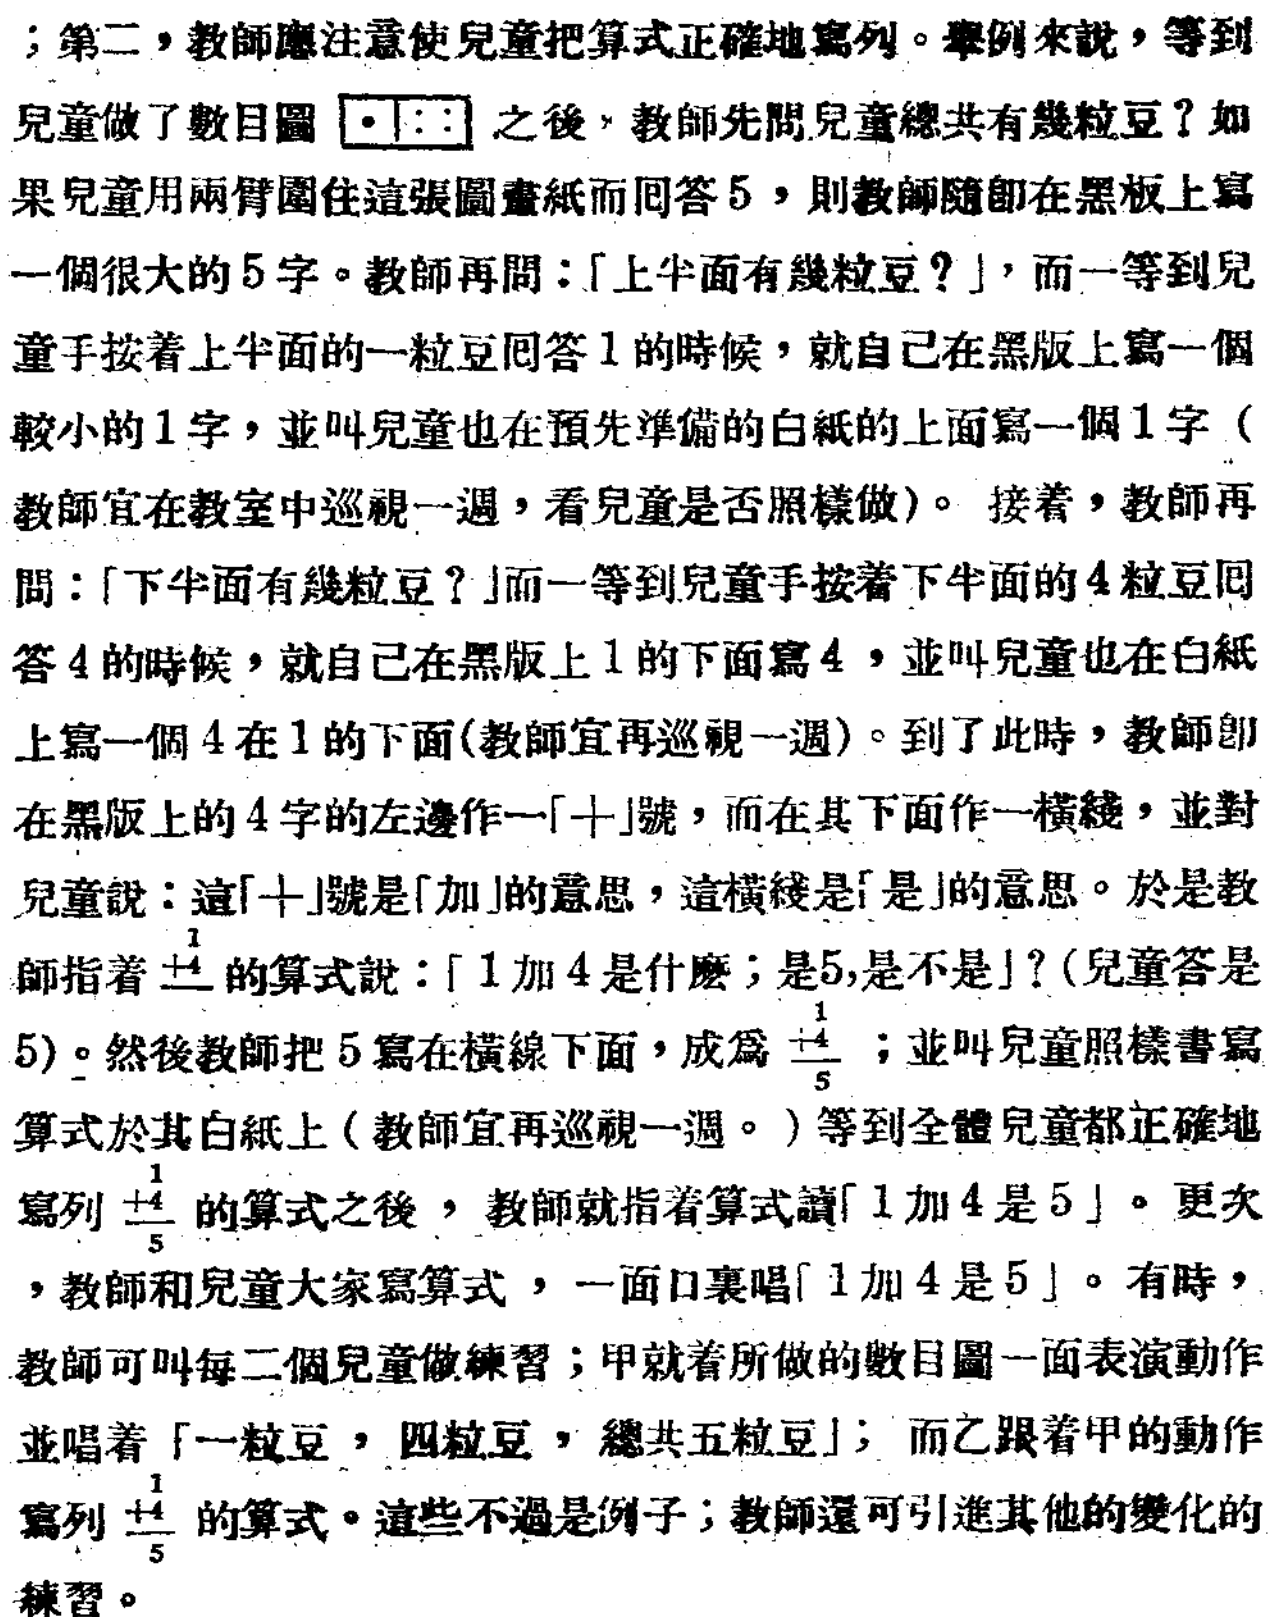 ；第二，教師應注意使兒童把算式正確地寫列。舉例來說，等到
兒童做了數目圖 之後，教師先問兒童總共有幾粒豆？如
果兒童用兩臂圍住這張圖畫紙而囘答5，則教師隨卽在黑板上寫
一個很大的5字。教師再問：「上半面有幾粒豆？」，而一等到兒
童手按着上半面的一粒豆囘答1的時候，就自己在黑版上寫一個
較小的1字，並叫兒童也在預先準備的白紙的上面寫一個1字（
教師宜在教室中巡視一週，看兒童是否照樣做）。 接着，教師再
問：「下半面有幾粒豆？」而一等到兒童手按着下半面的4粒豆囘
答4的時候，就自己在黑版上1的下面寫4，並叫兒童也在白紙
上寫一個4在1的下面(教師宜再巡視一週)。到了此時，教師卽
在黑版上的4字的左邊作一「＋」號，而在其下面作一橫綫，並對
兒童說：這「＋」號是「加」的意思，這橫綫是「是」的意思。於是教
師指着 1 +4 的算式說：「1加4是什麽；是5,是不是」？(兒童答是
5)。然後教師把5寫在橫線下面，成爲 1 +4 5 ；並叫兒童照樣書寫
算式於其白紙上（教師宜再巡視一週。）等到全體兒童都正確地
寫列 1 +4 5 的算式之後， 教師就指着算式讀「1加4是5」。 更次
，教師和兒童大家寫算式，一面口裏唱「1加4是5」。有時，
教師可叫每二個兒童做練習；甲就着所做的數目圖一面表演動作
並唱着「一粒豆， 四粒豆， 總共五粒豆」； 而乙跟着甲的動作
寫列 1 +4 5 的算式。這些不過是例子；教師還可引進其他的變化的
練習。